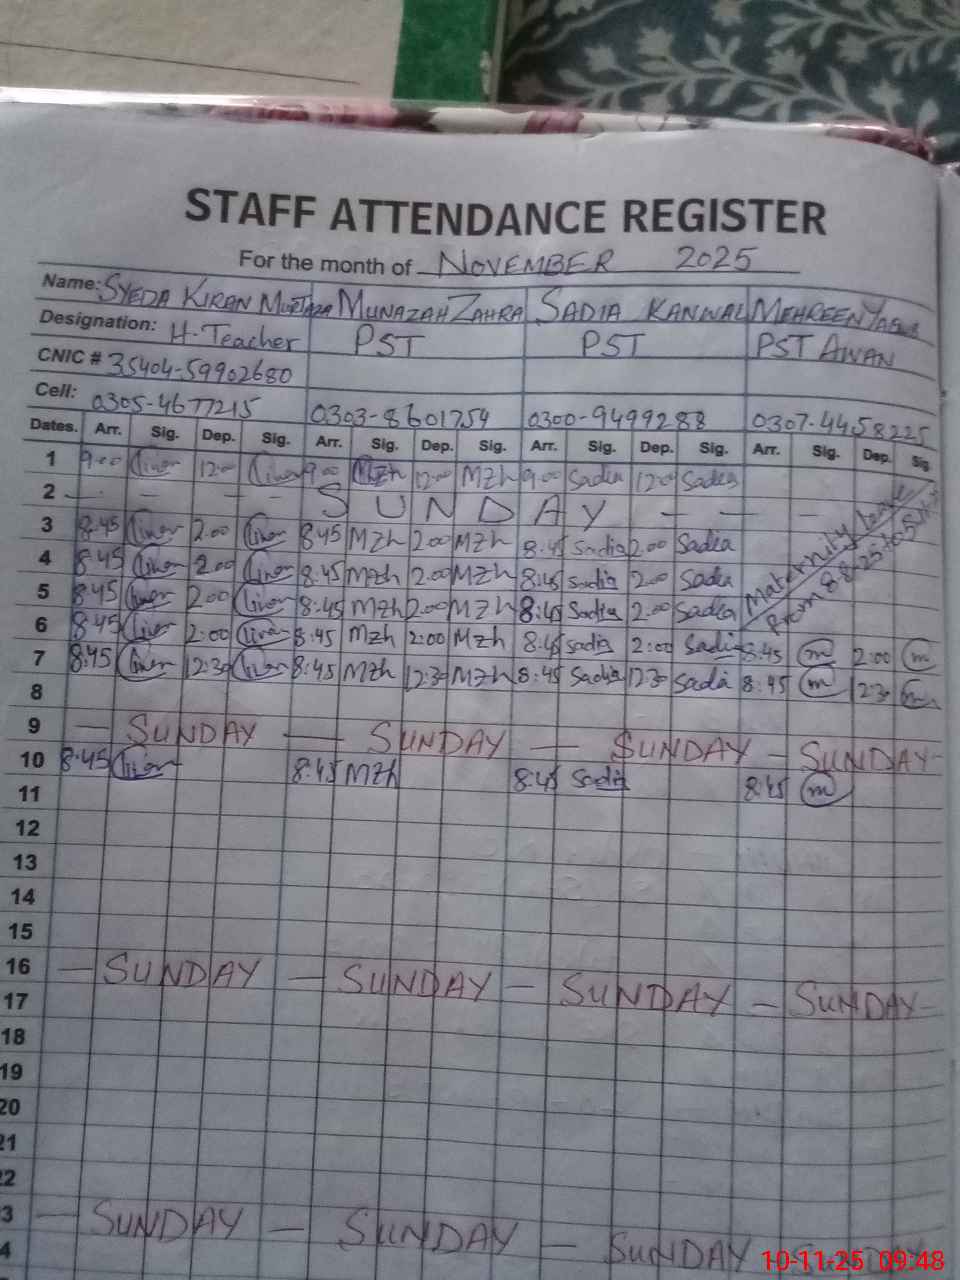 STAFF ATTENDANCE REGISTER
For the month of NOVEMBER 2025
Name: SYEDA KIRAN MURTAZA MUNAZAH ZAHRA SADIA KANWAL MEHREEN
Designation: H-Teacher PST PST PST AWAN
CNIC # 35404-59902680
Cell: 0305-4677215 0303-8601754 0300-9499288 0307-4458225
Dates. Arr. Sig. Dep. Sig. Arr. Sig. Dep. Sig. Arr. Sig. Dep. Sig. Arr. Sig. Dep. Sig
1 9:00 12:00 9:00 Mzh 12:00 Mzh 9:00 Sadia 12:00 Sadia
2 — — — — SUNDAY — — — —
3 8:45 2.00 8:45 Mzh 2:00 Mzh 8:45 Sadia 2:00 Sadia
4 8:45 2.00 8:45 Mzh 2.00 Mzh 8:45 Sadia 2:00 Sadia
5 8:45 2:00 8:45 Mzh 2:00 Mzh 8:45 Sadia 2:00 Sadia
Maternity Leave
From 8.8.25 to 5.
6 8:45 2:00 8:45 Mzh 2:00 Mzh 8:45 Sadia 2:00 Sadia 8:45 m 2:00 m
7 8:45 12:30 8:45 Mzh 12:30 Mzh 8:45 Sadia 12:30 Sadia 8:45 m 12:30 m
8
9 — SUNDAY — SUNDAY — SUNDAY — SUNDAY-
10 8:45 8:45 Mzh 8:45 Sadia 8:45 m
11
12
13
14
15
16 — SUNDAY — SUNDAY — SUNDAY — SUNDAY-
17
18
19
20
21
22
3 — SUNDAY — SUNDAY — SUNDAY SUNDAY
4
10-11-25 09:48